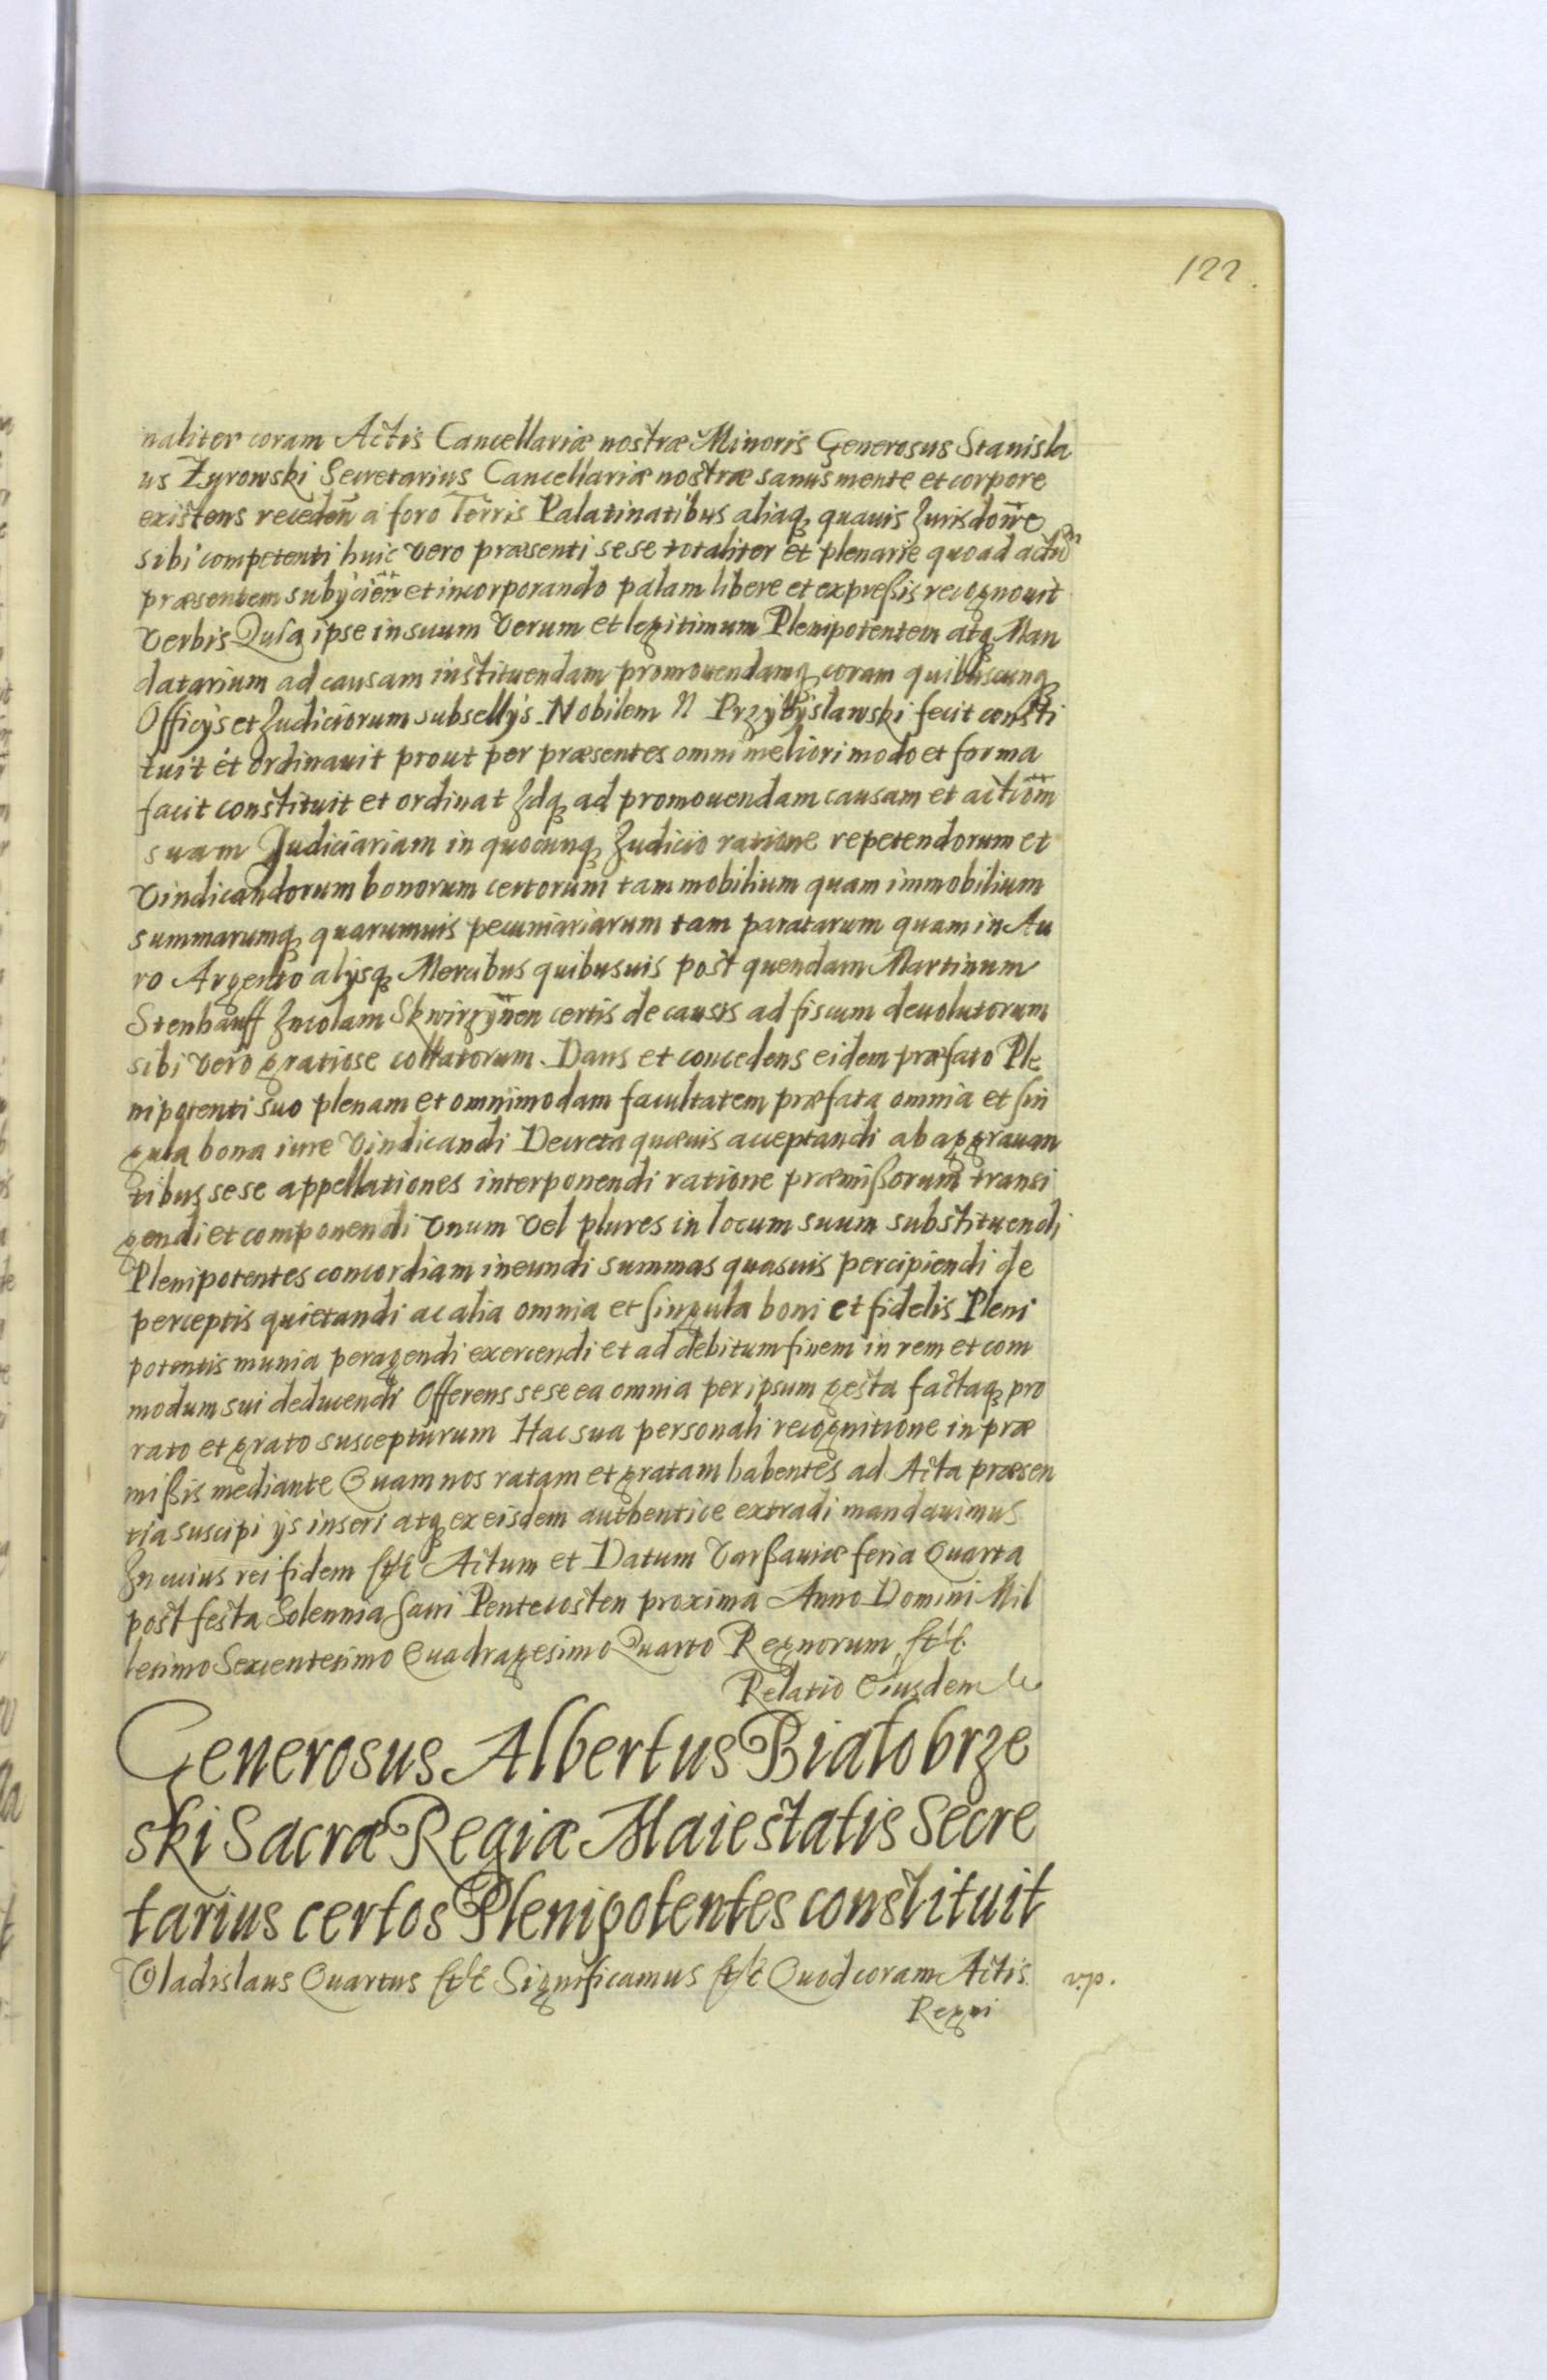 122.
naliter coram Actis Cancellariæ nostræ Minoris Generosus Stanisla
us Żyrowski Secretarius Cancellariæ nostræ sanus mente et corpore
existens receden̄ a foro Terris Palatinatibus aliaq₃ quauis Jurisdoīīe
sibi competenti huic vero præsenti sese totaliter et plenarie quoad actū
præsentem subÿcien̄ et incorporando palam libere et expreßis recognouit
verbis Quia ipse in suum verum et legitimum Plenipotentem atq₃ Man
datarium ad causam instituendam promouendamq₃ coram quibuscunq₃
Officÿs et Judiciorum subsellÿs Nobilem N Przybyslawski fecit consti
tuit et ordinauit prout per præsentes omni meliori modo et forma
facit constituit et ordinat Idq₃ ad promouendam causam et actiōm
suam Judiciariam in quocunq₃ Judicio ratione repetendorum et
vindicandorum bonorum certorum tam mobilium quam immobilium
summarumq₃ quarumuis pecuniariarum tam paratarum quam in Au
ro Argento alÿsq₃ Mercibus quibusuis post quendam Martinum
Stenhauff Incolam Skwirzÿnen certis de causis ad fiscum deuolutorum
sibi vero gratiose collatorum. Dans et concedens eidem præfato Ple
nipotenti suo plenam et omnimodam facultatem præfata omnia et sin
gula bona iure vindicandi Decreta quæuis acceptandi ab aggrauan
tibus sese appellationes interponendi ratione præmißorum transi
gendi et componendi vnum vel plures in locum suum substituendi
Plenipotentes concordiam ineundi summas quasuis percipiendi de
perceptis quietandi ac alia omnia et singula boni et fidelis Pleni
potentis munia peragendi exercendi et ad debitum finem in rem et com
modum sui deducendi Offerens sese ea omnia per ipsum gesta factaq₃ pro
rato et grato suscepturum Hac sua personali recognitione in præ
mißis mediante Quam nos ratam et gratam habentes ad Acta præsen
tia suscipi ÿs inseri atq₃ ex eisdem authentice extradi mandauimus
In cuius rei fidem etc Actum et Datum Varßauiæ feria Quarta
post festa Solennia Sacri Pentecosten proxima Anno Domini Mil
lesimo Sexcentesimo Quadragesimo Quarto Regnorum etc.
Relatio Eiusdem
Generosus Albertus Białobrze
ski Sacræ Regiæ Maiestatis Secre
tarius certos Plenipotentes constituit
Vladislaus Quartus etc Significamus etc Quod coram Actis v.p.
Regni